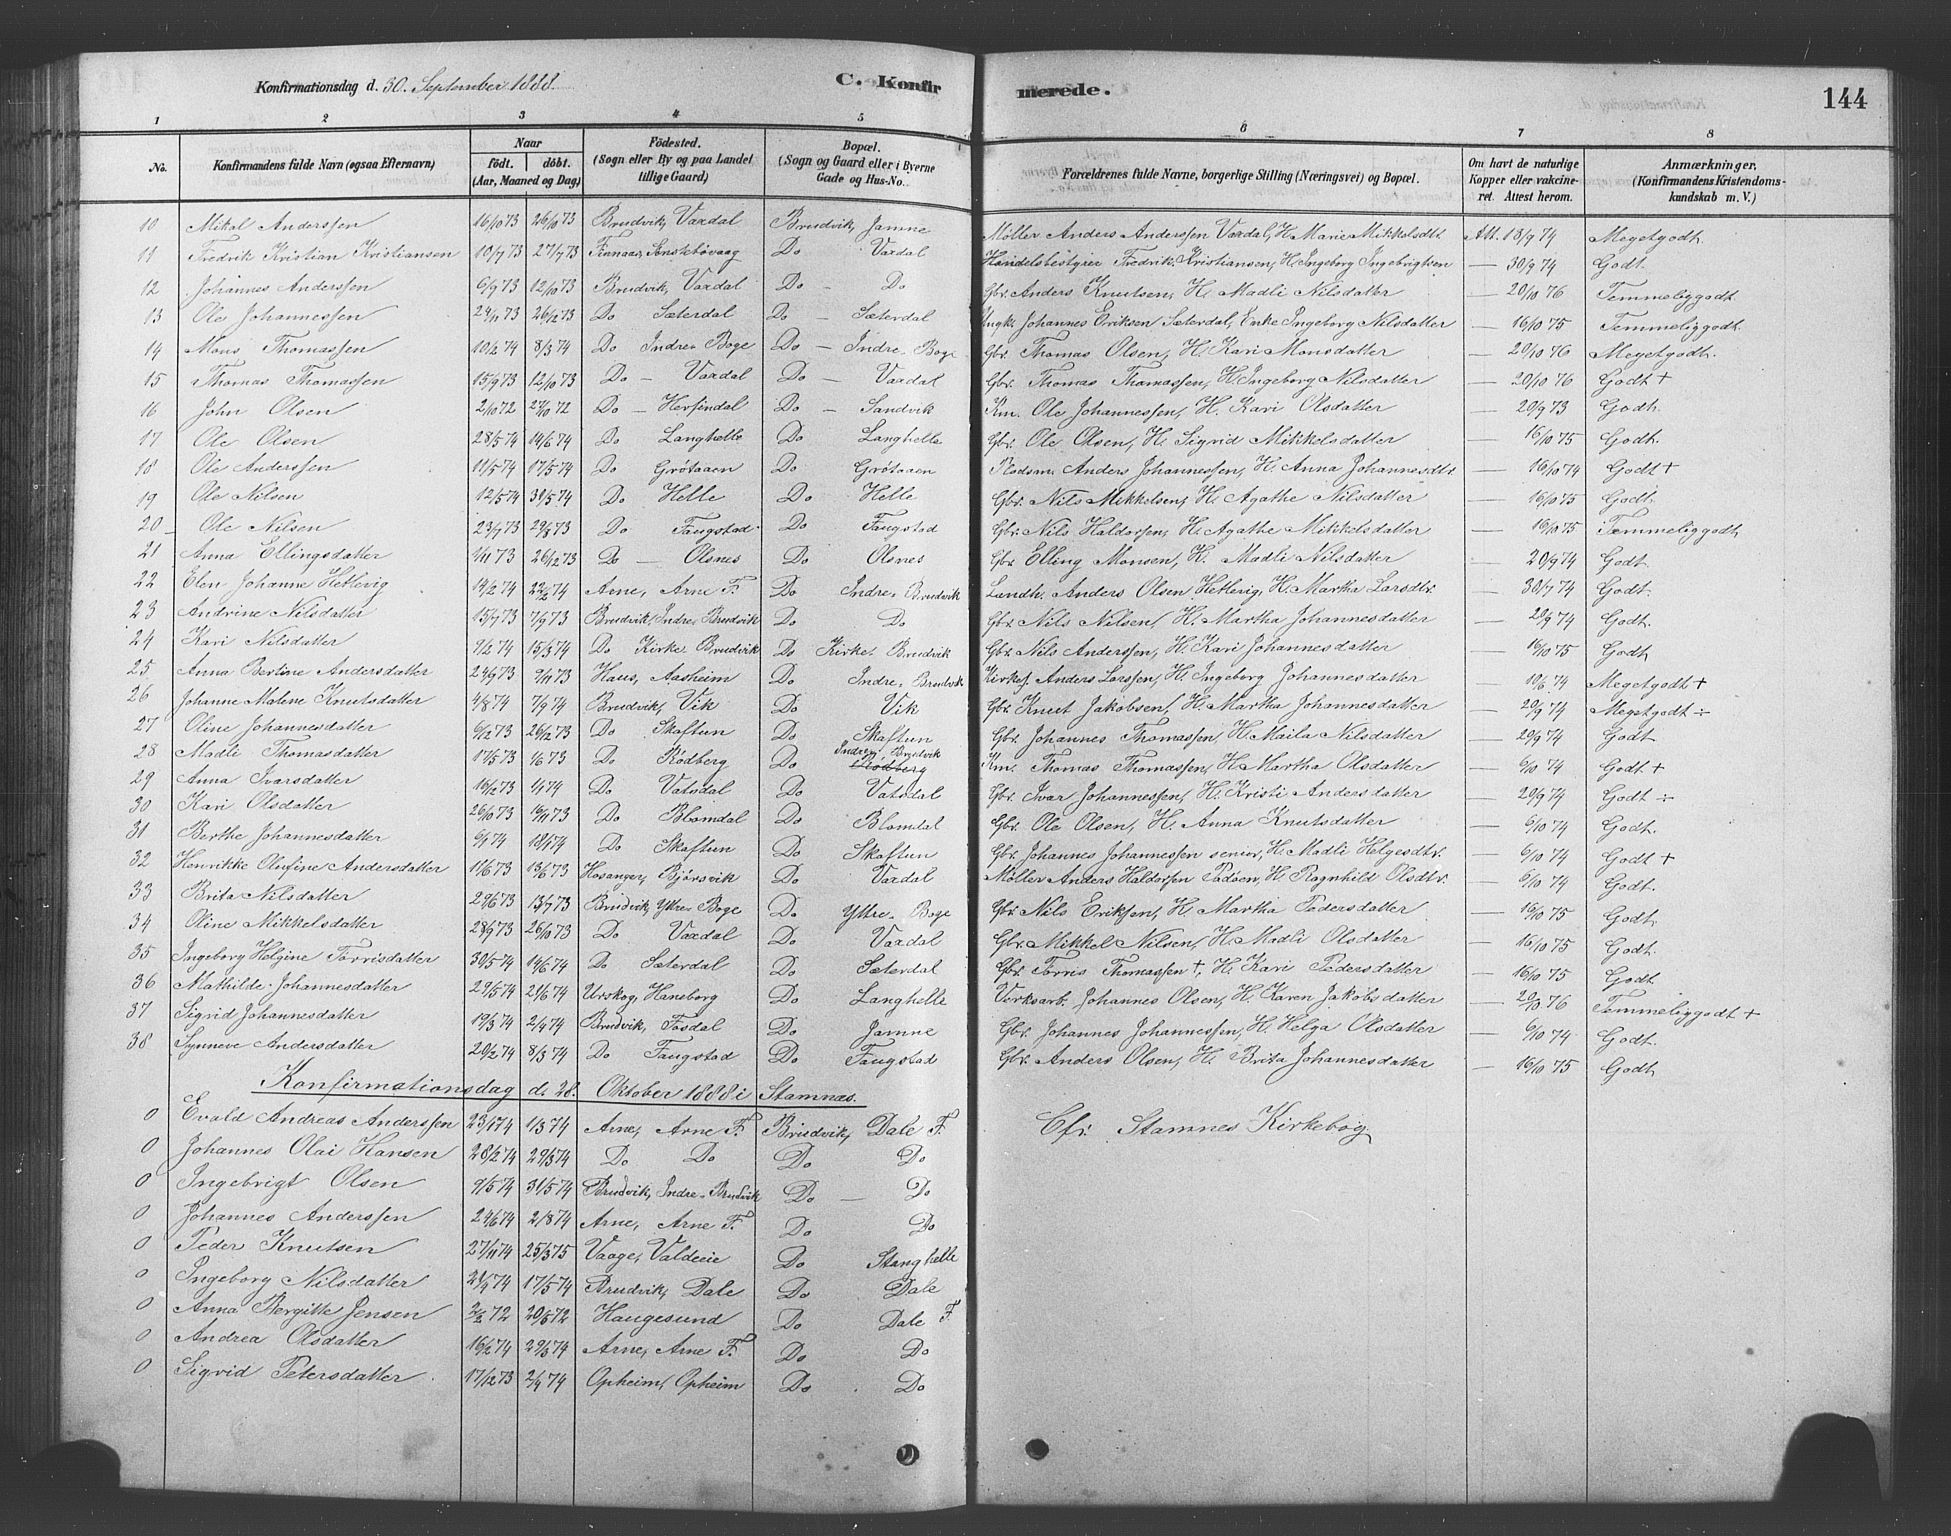 Konfirmationsdag d. 30. September 1888. C. Konfir merede. 144
1 2 3 4 5 6 7 8
No. Konfirmandens fulde Navn (ogsaa Efternavn) Naar født. døbt. (Aar, Maaned og Dag.) Fødested. (Sogn eller By og paa Landet tillige Gaard.) Bopæl. (Sogn og Gaard eller i Byerne Gade og Hus-No.. Forældrenes fulde Navne, borgerlige Stilling (Næringsvei) og Bopæl. Om havt de naturlige Kopper eller vakcineret. Attest herom. Anmærkninger, (Konfirmandens Kristendomskundskab m. V.)
10 Mikal Anderssen 16/10 73 26/10 73 Brudvik, Vaxdal Brudvik, Jamne Møller Anders Anderssen Vaxdal, H. Marie Mikkelsdtr Att. 18/9 74 Megetgodt.
11 Fredrik Kristian Kristiansen 10/7 73 27/7 73 Finnaas, Do Vaxdal Handelsbestyrer Fredrik Kristiansen, H. Ingeborg Ingebrigtsen — 30/9 74 Godt.
12 Johannes Anderssen 6/9 73 12/10 73 Brudvik, Vaxdal Do — Do Gbr. Anders Knutsen, H. Madli Nilsdatter — 20/10 76 Temmeliggodt
13 Ole Johannessen 24/11 73 26/12 73 Do Sæterdal Do — Sæterdal Ungk. Johannes Eriksen Sæterdal, Enke Ingeborg Nilsdatter — 16/10 75 Temmeliggodt.
14 Mons Thomassen 10/2 74 8/3 74 Do Indre Boge Do — Indre Boge Gbr. Thomas Olsen, H. Kari Monsdatter — 20/10 76 Megetgodt.
15 Thomas Thomassen 15/9 73 12/10 73 Do — Vaxdal Do — Vaxdal Gbr. Thomas Thomassen, H. Ingeborg Nilsdatter — 20/10 76 Godt +
16 John Olsen 2/10 72 27/10 72 Do — Herfindal Do — Sandvik Km. Ole Johannessen, H. Kari Olsdatter — 20/9 73 Godt.
17 Ole Olsen 28/5 74 14/6 74 Do Langhelle Do Langhelle Gbr. Ole Olsen, H. Sigrid Mikkelsdatter — 16/10 75 Godt.
18 Ole Anderssen 11/5 74 17/5 74 Do Grøtaaen Do Grøtaaen Pladsm. Anders Johannessen, H. Anna Johannesdtr. — 16/10 74 Godt +
19 Ole Nilsen 12/5 74 31/5 74 Do Helle Do Helle Gbr. Nils Mikkelsen, H. Agathe Nilsdatter — 16/10 75 Godt.
20 Ole Nilsen 23/7 73 29/8 73 Do Faugstad Do Faugstad Gbr. Nils Haldorsen, H. Agathe Mikkelsdatter — 16/10 75 Temmeliggodt.
21 Anna Ellingsdatter 3/11 73 26/12 73 Do — Olsnes Do Olsnes Gbr. Elling Monsen, H. Madli Nilsdatter — 20/9 74 Godt.
22 Elen Johanne Hetlevig 14/2 74 22/2 74 Arne, Arne F. Do Indre Brudvik Landh. Anders Olsen Hetlevig, H. Martha Larsdtr. — 30/7 74 Godt.
23 Andrine Nilsdatter 15/7 73 7/9 73 Brudvik, Indre Brudvik Do Do Gbr. Nils Nilsen, H. Martha Johannesdatter — 20/9 74 Godt.
24 Kari Nilsdatter 9/2 74 15/3 74 Do Kirke Brudvik Do Kirke Brudvik Gbr. Nils Anderssen, H. Kari Johannesdatter — 16/10 75 Godt,
25 Anna Bertine Andersdatter 24/9 73 9/11 73 Haus, Aasheim Do Indre Brudvik Kirkes. Anders Larssen, H. Ingeborg Johannesdatter — 10/6 74 Megetgodt +
26 Johanne Malene Knutsdatter 4/8 74 7/9 74 Brudvik, Vik Do Vik Gbr. Knut Jakobsen, H. Martha Johannesdatter — 20/9 74 Megetgodt ÷
27 Oline Johannesdatter 6/12 73 26/12 73 Do Skaftun Do Skaftun Gbr. Johannes Thomassen, H. Maila Nilsdatter — 20/9 74 Godt
28 Madli Thomasdatter 17/5 73 1/6 73 Do Rødberg Do Indre Brudvik Rødberg Km. Thomas Thomassen, H. Martha Olsdatter — 6/10 74 Godt +
29 Anna Ivarsdatter 16/12 73 1/1 74 Do Vatsdal Do Vatsdal Gbr. Ivar Johannessen, H. Kristi Andersdatter — 20/9 74 Godt ÷
30 Kari Olsdatter 26/10 73 16/11 73 Do Blomdal Do Blomdal Gbr. Ole Olsen, H. Anna Knutsdatter — 6/10 74 Godt.
31 Berthe Johannesdatter 6/1 74 18/1 74 Do Skaftun Do Skaftun Gbr. Johannes Johannessen senior, H. Madli Helgesdtr. — 6/10 74 Godt +
32 Henrikke Olufine Andersdatter 11/6 73 13/6 73 Hosanger, Bjørsvik Do Vaxdal Møller Anders Haldorsen Tadøen, H. Ragnhild Olsdtr. — 6/10 74 Godt.
33 Brita Nilsdatter 29/6 73 13/7 73 Brudvik, Yttre Boge Do Yttre Boge Gbr. Nils Eriksen, H. Martha Pedersdatter — 16/10 75 Godt.
34 Oline Mikkelsdatter 28/9 73 26/10 73 Do Vaxdal Do Vaxdal Gbr. Mikkel Nilsen, H. Madli Olsdatter — 16/10 75 Godt.
35 Ingeborg Helgine Torrisdatter 30/5 74 14/6 74 Do Sæterdal Do Sæterdal Gbr. Torris Thomassen +, H. Kari Pedersdatter — 16/10 75 Godt
36 Mathilde Johannesdatter 29/5 74 21/6 74 Urskog, Haneborg Do Langhelle Verksarb. Johannes Olsen, H. Karen Jakobsdatter — 20/10 76 Temmeliggodt +
37 Sigrid Johannesdatter 19/3 74 2/4 74 Brudvik, Fosdal Do Jamne Gbr. Johannes Johannessen, H. Helga Olsdatter — 6/10 74 Godt.
38 Synneve Andersdatter 20/2 74 8/3 74 Do Faugstad Do Faugstad Gbr. Anders Olsen, H. Brita Johannesdatter — 16/10 75 Godt,
Konfirmationsdag d. 28. Oktober 1888 i Stamnæs.
0 Evald Andreas Anderssen 23/1 74 1/3 74 Arne, Arne F. Brudvik, Dale F. Cfr. Stamnes Kirkebog
0 Johannes Olai Hansen 28/2 74 29/3 74 Do Do Do Do
0 Ingebrigt Olsen 9/5 74 31/5 74 Brudvik, Indre Brudvik Do — Do
0 Johannes Anderssen 24/6 74 2/8 74 Arne, Arne F. Do Do
0 Peder Knutsen 27/11 74 25/3 75 Vaage, Valdeie Do Stanghelle
0 Ingeborg Nilsdatter 21/4 74 17/5 74 Brudvik, Dale Do Dale
0 Anna Bergitte Jensen 2/2 72 20/5 72 Haugesund Do Dale F.
0 Andrea Olsdatter 16/2 74 29/3 74 Arne, Arne F. Do Do
0 Sigrid Petersdatter 17/12 73 2/4 74 Opheim, Opheim Do Do